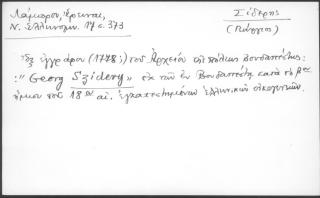 Λάμπρου, Ἔρευναι,
Ν. Ἑλληνομν. 17 σ. 373
Σίδερης
(Γεώργιος)
Ἐξ ἐγγράφου (1778;) τοῦ Ἀρχείου τῆς πόλεως Βουδαπέστης:
:"Georg Szidery" ἐκ τῶν ἐν Βουδαπέστῃ κατὰ τὸ βον
ἥμισυ τοῦ 18ου αἰ. ἐγκατεστημένων ἑλληνικῶν οἰκογενειῶν.